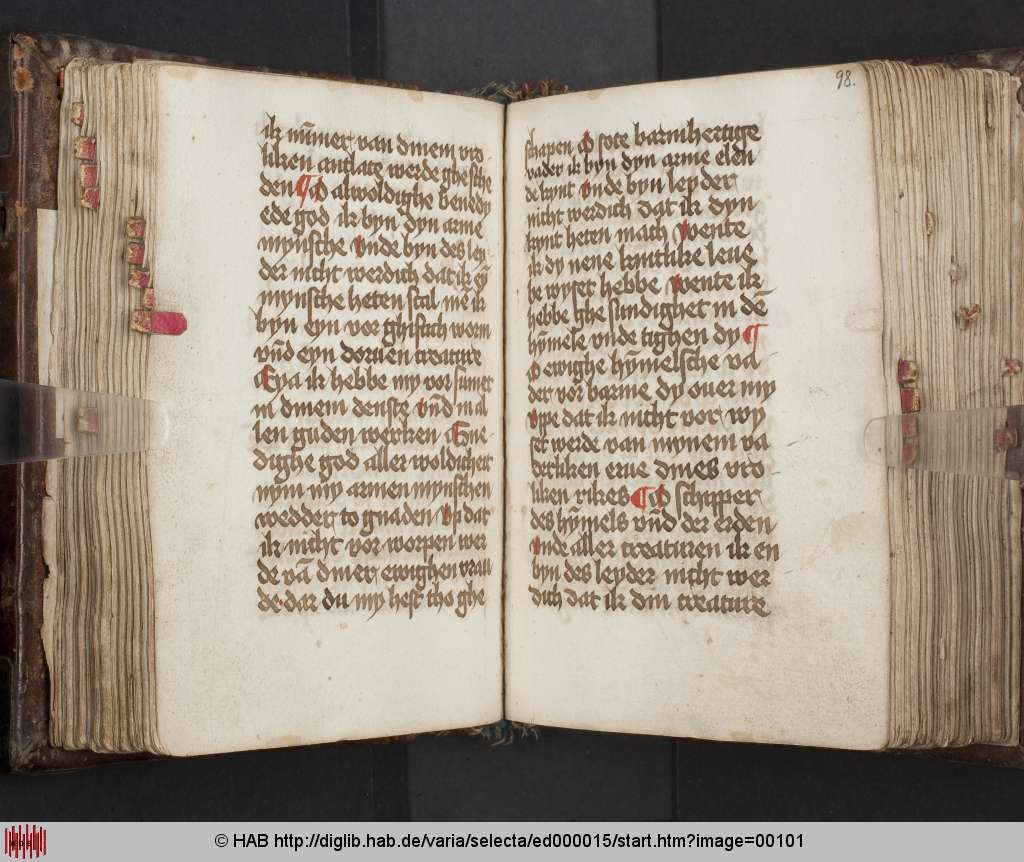 ik nūmer van dinem vro-
liken antlate werde ghesche
den ¶ O alwoldighe benedy
ede god ik byn dyn arme
mynsche vnde byn des ley
der nicht werdich dat ik eyn
mynsche heten scal mē ik
byn eyn vor ghiftich worm
vnd eyn doruen creature
Eya ik hebbe my vor sumet
in dinem denste vnd in al
len guden werken Gne-
dighe god aller woldicheit
nym my armen mynschen
wedder to gnaden vp dat
ik nicht vor worpen wer
de vā diner ewighen vrau
de dar du my hest tho ghe
98.
schapen O sote barmhertige
vader ik byn dyn arme elen
de kynt vnde byn leyder
nicht werdich dat ik dyn
kynt heten mach wente
ik dy nene kintlike leue
be wyset hebbe wente ik
hebbe ghe sundighet in dē
hȳmele vnde tighen dy ¶
O ewighe hȳmelsche va
der vor barme dy ouer my
vpe dat ik nicht vor wy
set werde van mynem va
derliken erue dines vro
liken rikes ¶ O schipper
des hȳmels vnd der erden
vnde aller creaturen ik en
byn des leyder nicht wer
dich dat ik din creature
© HAB http://diglib.hab.de/varia/selecta/ed000015/start.htm?image=00101